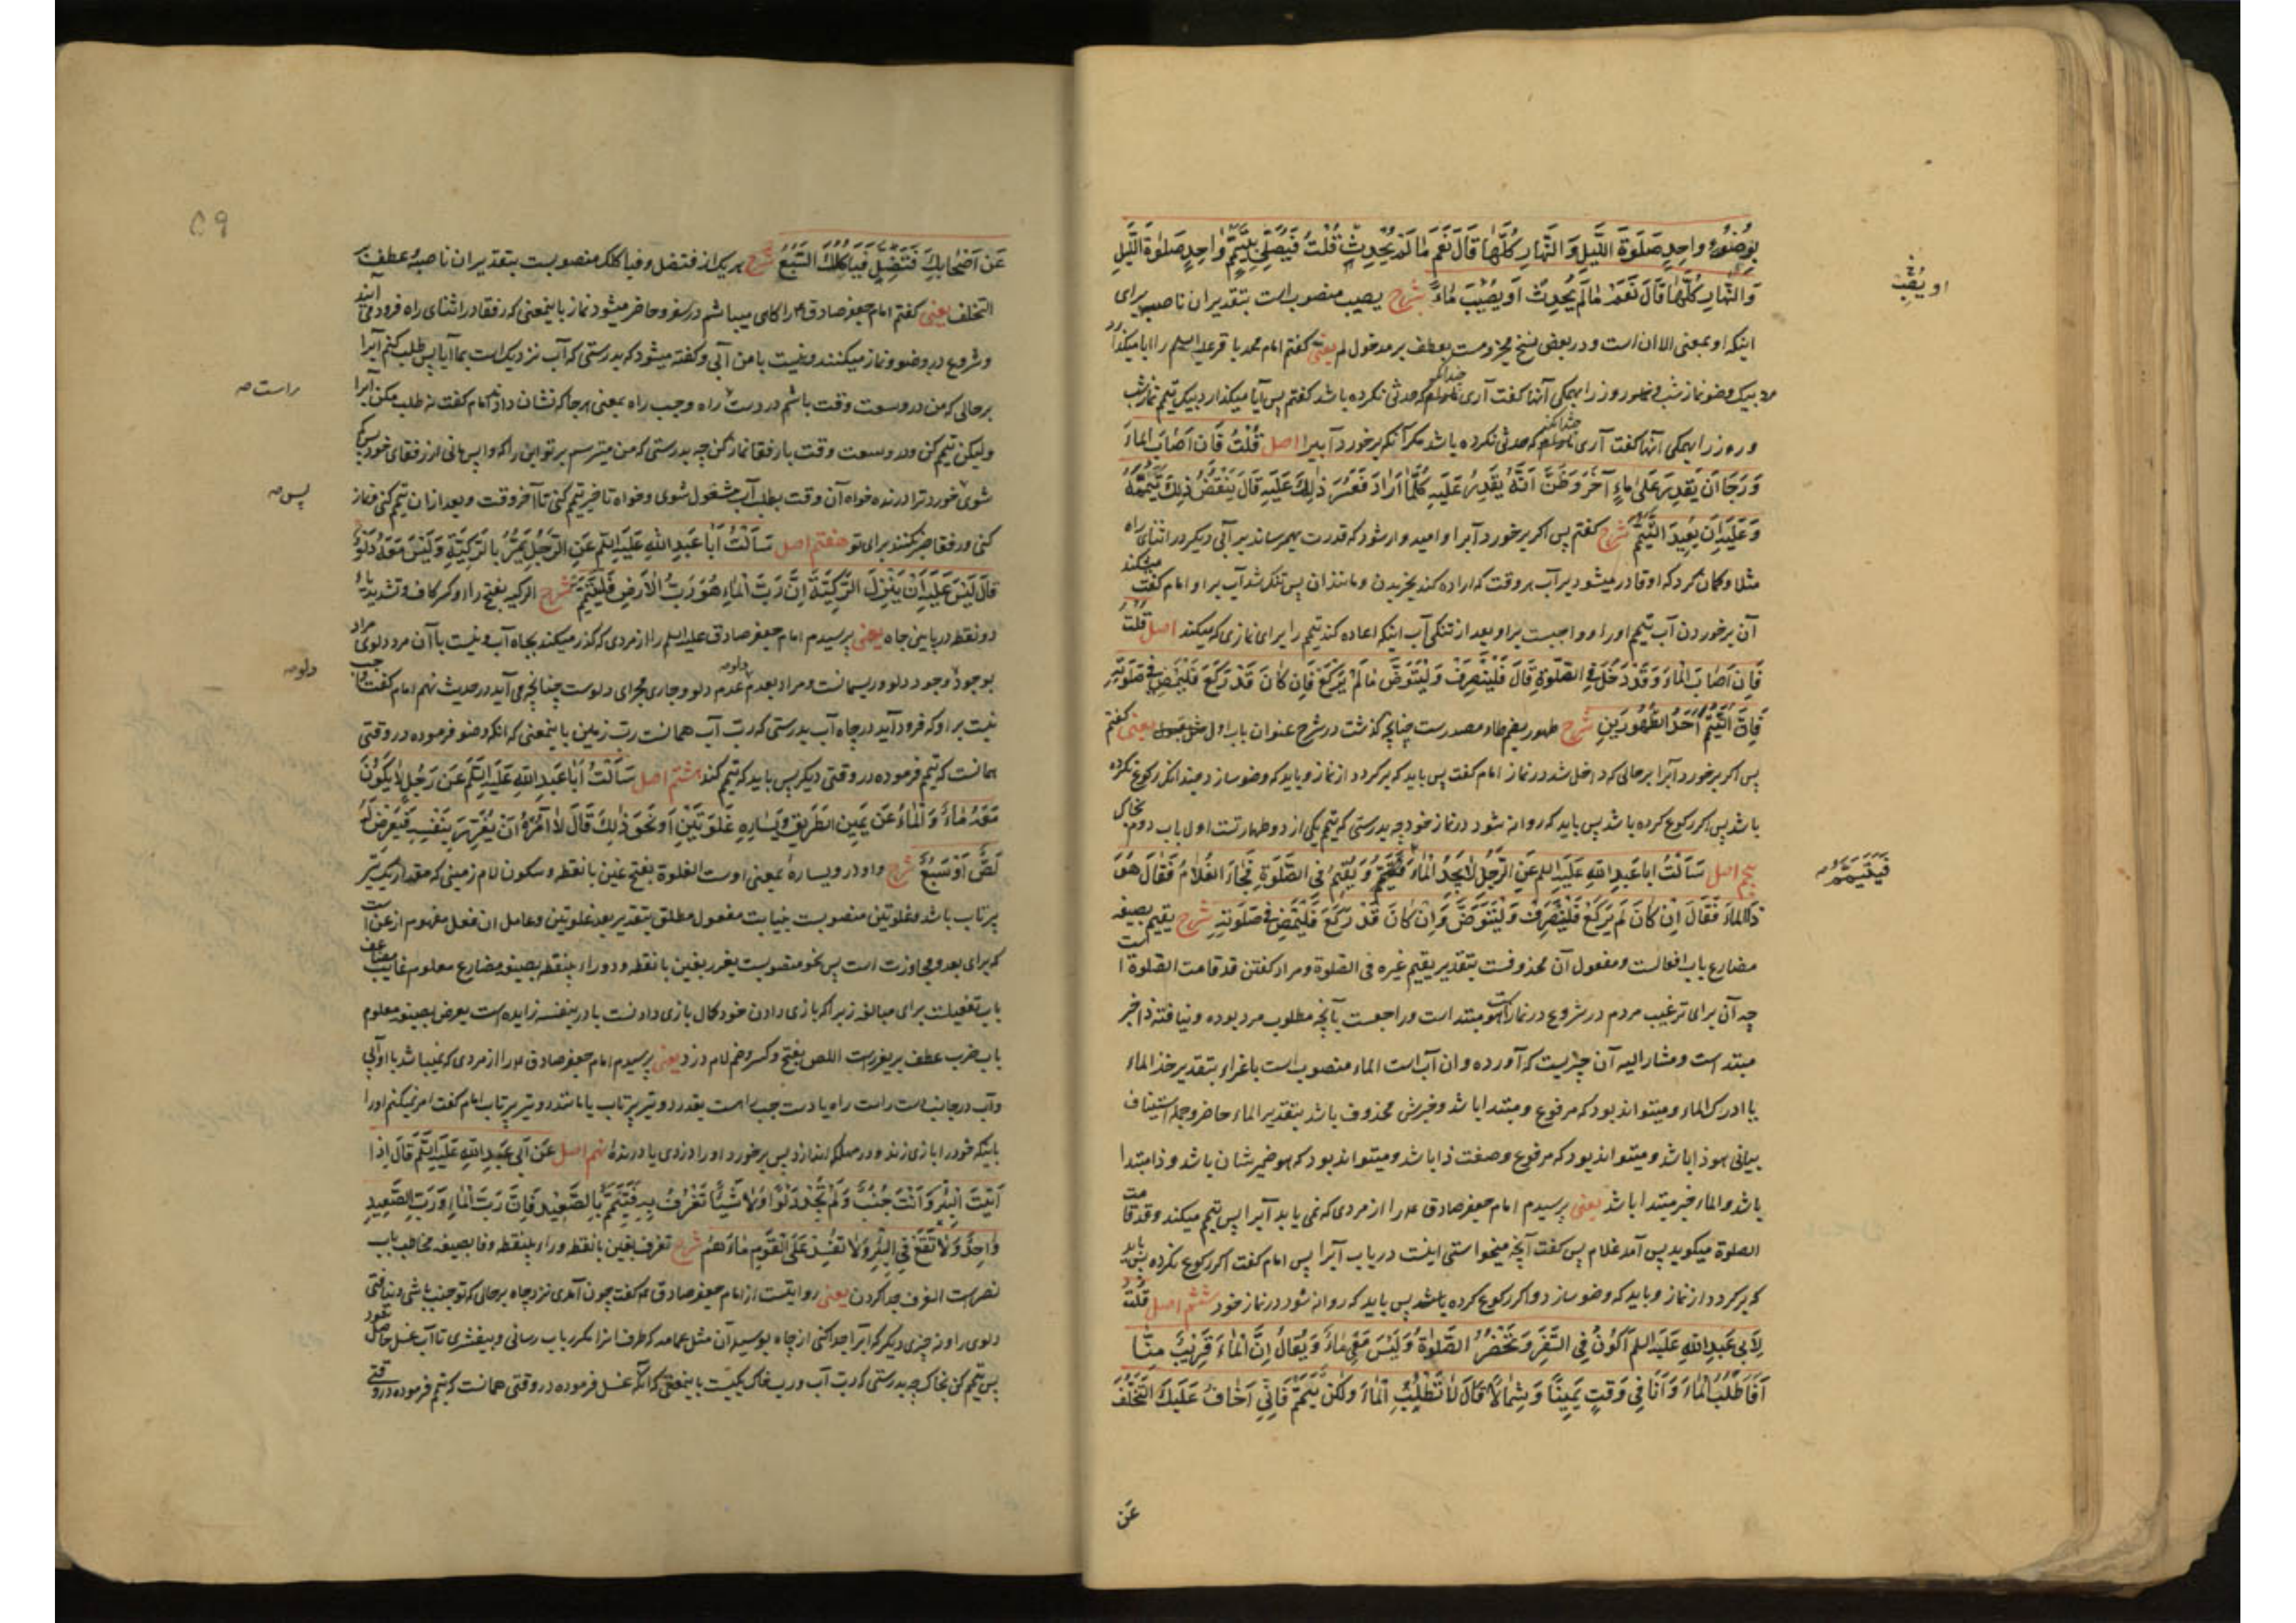 بِوُضُوءٍ واحِدٍ صَلَوةَ اللَّيلِ وَالنَّهارِ كُلَّها قَالَ نَعَم مَا لَم يُحدِث قُلْتُ فَيُصَلّي بِتَيَمُّمٍ واحِدٍ صَلوةَ اللَّيلِ
او يُصِب
وَالنَّهارِ كُلَّها قَالَ نَعَم مَا لَم يُحدِث اَو يُصيبَ مٰاءً شرح یصیب منصوب است بتقدیر ان ناصبه برای
اینکه او بمعنی الا ان است و در بعض نسخ مجزومست بعطف بر مدخول لم یعنی گفتم امام محمد باقر علیه السلم را آیا میگذارد
مرد بیک وضو نماز شب و روز را بهمکی آنها گفت آری چندانکه حدثی نکرده باشد گفتم پس آیا میگذارد بیک تیمم نماز شب
و روز را بهمکی آنها گفت آری چندانکه حدثی نکرده باشد مگر آنکه برخورد آبیرا اصل قُلْتُ فَاِن اَصٰابَ الماءَ
وَ رَجَا اَن يَقدِرَ عَلى ماءٍ آخَرَ وَ ظَنَّ اَنَّهُ يَقدِرُ عَلَيهِ كُلَّمٰا اَرٰادَ فَعَسُرَ ذٰلِكَ عَلَيهِ قَالَ يَنقُضُ ذٰلِكَ تَيَمُّمَهُ
وَ عَلَيهِ اَن يُعيدَ التَّيَمُّمَ شرح گفتم پس اگر برخورد آبرا و امیدوار شود که قدرت بهم رساند بر آبی دیگر در اثنای راه
مثلا و گمان کرد که او قادر میشود بر آب هر وقت که اراده کند بخریدن و مانند آن پس تنک شد آب بر او امام گفت میشکند
آن برخوردن آب تیمم او را و واجبست بر او بعد از تنکی آب اینکه اعاده کند تیمم را برای نمازی که میکند اصل قلت
فَاِن اَصٰابَ الْمٰاءَ وَ قَد دَخَلَ فِي الصَّلٰوةِ قَالَ فَلْيَنصَرِفْ وَ لْيَتَوَضَّ مٰا لَمْ يَركَعْ فَاِن كٰانَ قَد رَكَعَ فَلْيَمضِ في صَلَوتِهِ
فَاِنَّ التَّيَمُّمَ اَحَدُ الطَّهُورَينِ شرح طهور بضم طاء مصدرست چنانچه گذشت در شرح عنوان باب اول یعنی گفتم
پس اگر برخورد آبرا بر حالی که داخل شد در نماز امام گفت پس باید که برگردد از نماز و باید که وضو سازد چندانکه رکوع نکرده
باشد پس اگر رکوع کرده باشد پس باید که روانه شود در نماز خود چه بدرستی که تیمم یکی از دو طهارتست اول باب دوم بخاک
فَيَتَيَمَّمُ صه
پنجم اصل سَاَلْتُ اباعَبدِاللهِ عَلَيهِ السلم عَنِ الرَّجُلِ لٰا يَجِدُ الْمٰاءَ فَيَتَيَمَّمُ وَ يُقيمُ فِي الصَّلٰوةِ فَجٰاءَ الغُلٰامُ فَقٰالَ هُوَ
ذَا الماءَ فَقٰالَ اِن كٰانَ لَم يَركَعْ فَلْيَنصَرِفْ وَ لْيَتَوَضَّ وَ اِن كٰانَ قَد رَكَعَ فَلْيَمضِ في صَلَوتِهِ شرح یقیم بصیغه
مضارع باب افعالست و مفعول آن محذوفست بتقدیر یقیم غیره فی الصلوة و مراد گفتن قد قامت الصلوة است
چه آن برای ترغیب مردم در شروع در نمازاست هو مبتداست و راجعست بآنچه مطلوب مرد بوده و نیافته ذا خبر
مبتداست و مشار الیه آن چیزیست که آورده و ان آب است الماء منصوب است باغراء بتقدیر خذ الماء
یا ادرک الماء و میتواند بود که مرفوع و مبتدا باشد و خبرش محذوف باشد بتقدیر الماء حاضر و جمله استیناف
بیانی هو ذا باشد و میتواند بود که مرفوع و صفت ذا باشد و میتواند بود که هو ضمیر شان باشد و ذا مبتدا
باشد و الماء خبر مبتدا باشد یعنی پرسیدم امام جعفر صادق ع را از مردی که نمی یابد آبرا پس تیمم میکند و قد قامت
الصلوة میگوید پس آمد غلام پس گفت آنچه میخواستی اینست دریاب آبرا پس امام گفت اگر رکوع نکرده پس باید
که برگردد از نماز و باید که وضو سازد و اگر رکوع کرده باشد پس باید که روانه شود در نماز خود ششم اصل قلت
لِاَبي عَبدِ اللهِ عَلَيهِ السلم اَكُونُ فِي السَّفَرِ وَ تَحْضُرُ الصَّلٰوةُ وَ لَيْسَ مَعي مٰاءٌ وَ يُقالُ اِنَّ الْمٰاءَ قَريبٌ مِنّٰا
اَفَاَطلُبُ الْمٰاءَ وَ اَنَا في وَقتٍ يَميناً وَ شِمٰالاً قَالَ لٰا تَطلُبِ الْمٰاءَ وَ لٰكِن تَيَمَّمْ فَاِنّي اَخٰافُ عَلَيكَ التَّخَلُّفَ
عَن
٥٩
عَن اَصْحٰابِكَ فَتَضِلَّ فَيَأكُلَكَ السَّبُعُ شرح هر یک از فتضل و فیاکلک منصوبست بتقدیر ان ناصبه و عطف بر
التخلف یعنی گفتم امام جعفر صادق ع را گاهی میباشم در سفر و حاضر میشود نماز باینمعنی که رفقا در اثنای راه فرود می آیند
و شروع در وضو و نماز میکنند و نیست با من آبی و گفته میشود که بدرستی که آب نزدیک است بما آیا پس طلب کنم آبرا
راست صه
بر حالی که من در وسعت وقت باشم در دست راه و چپ راه یعنی هر جا که نشان داد امام گفت نه طلب مکن آبرا
ولیکن تیمم کن و در وسعت وقت با رفقا نماز کن چه بدرستی که من میترسم بر تو این را که واپس مانی از رفقای خود پس گم
پس صه
شوی خورد ترا درنده خواه آن وقت بطلب آب مشغول شوی و خواه تاخیر تیمم کنی تا آخر وقت و بعد از ان تیمم کنی و نماز
کنی و رفقا صبر نکنند برای تو هفتم اصل سَاَلْتُ اَبٰا عَبدِ اللهِ عَلَيهِ السلم عَنِ الرَّجُلِ يَمُرُّ بِالرَّكِيَّةِ وَ لَيْسَ مَعَهُ دَلْوٌ
قَالَ لَيْسَ عَلَيهِ اَنْ يَنْزِلَ الرَّكِيَّةَ اِنَّ رَبَّ الْمٰاءِ هُوَ رَبُّ الْاَرضِ فَلْيَتَيَمَّمْ شرح الرکیه بفتح راء و کسر کاف و تشدید یاء
دو نقطه در پایین چاه یعنی پرسیدم امام جعفر صادق علیه السلم را از مردی که گذر میکند بچاه آب و نیست با آن مرد دلوی مراد
دلو صه
بوجود وجود دلو و ریسمانست و مراد بعدم عدم دلو و جاری مجرای دلوست چنانچه می آید در حدیث نهم امام گفت واجب
نیست بر او که فرود آید در چاه آب بدرستی که رب آب همانست رب زمین باینمعنی که آنکه وضو فرموده در وقتی
همانست که تیمم فرموده در وقتی دیگر پس باید که تیمم کند هشتم اصل سَاَلْتُ اَبٰا عَبدِ اللهِ عَلَيهِ السلم عَن رَجُلٍ لٰا يَكُونُ
مَعَهُ مٰاءٌ وَ الْمٰاءُ عَن يَمينِ الطَّريقِ وَ يَسٰارِهِ غَلْوَتَيْنِ اَو نَحوَ ذٰلِكَ قَالَ لٰا آمُرُهُ اَنْ يُغَرِّرَ بِنَفْسِهِ فَيَعرِضَ لَهُ
لِصٌّ اَوْ سَبُعٌ شرح واو در و یساره بمعنی اوست الغلوة بفتح غین با نقطه و سکون لام زمینی که مقدار یک تیر
پرتاب باشد و غلوتین منصوبست بنیابت مفعول مطلق بتقدیر بعد غلوتین و عامل ان فعل مفهوم از عن است
که برای بعد و مجاوزت است پس نحو منصوبست یغرر بغین با نقطه و دو راء بینقطه بصیغه مضارع معلوم غایب مضاعف
باب تفعیلست برای مبالغه زیرا که بازی دادن خود کمال بازی دادنست با در بنفسه زایده است یعرض بصیغه معلوم
باب ضرب عطف بر یغررست اللص بفتح و کسر و ضم لام دزد یعنی پرسیدم امام جعفر صادق ع را از مردی که نمیباشد با او آبی
و آب در جانب دست راست راه یا دست چپ راه است بقدر دو تیر پرتاب یا مانند دو تیر پرتاب امام گفت امر نمیکنم او را
باینکه خود را بازی زند و در مهلکه اندازد پس برخورد او را دزدی یا درنده نهم اصل عَن اَبي عَبدِ اللهِ عَلَيهِ السلم قَالَ اِذا
اَتَيْتَ الْبِئْرَ وَ اَنْتَ جُنُبٌ وَ لَمْ تَجِدْ دَلْواً وَ لٰا شَيْئاً تَغْرُفُ بِهِ فَتَيَمَّمْ بِالصَّعيدِ فَاِنَّ رَبَّ الْمٰاءِ وَ رَبَّ الصَّعيدِ
وٰاحِدٌ وَ لٰا تَقَعْ فِي الْبِئْرِ وَ لٰا تُفْسِدْ عَلَى الْقَوْمِ مٰاءَهُمْ شرح تغرف بغین با نقطه و راء بینقطه و فا بصیغه مخاطب باب
نصرست الغرف جدا کردن یعنی روایتست از امام جعفر صادق ع که گفت چون آمدی نزد چاه بر حالی که تو جنب باشی و نیافتی
دلوی را و نه چیزی دیگر که آبرا جدا کنی از چاه بوسیله آن مثل عمامه که طرف انرا مکرر بآب رسانی و بیفشری تا آب غسل حاصل شود
پس تیمم کن بخاک چه بدرستی که رب آب و رب خاک یکیست باینمعنی که آنکه غسل فرموده در وقتی همانست که تیمم فرموده در وقتی